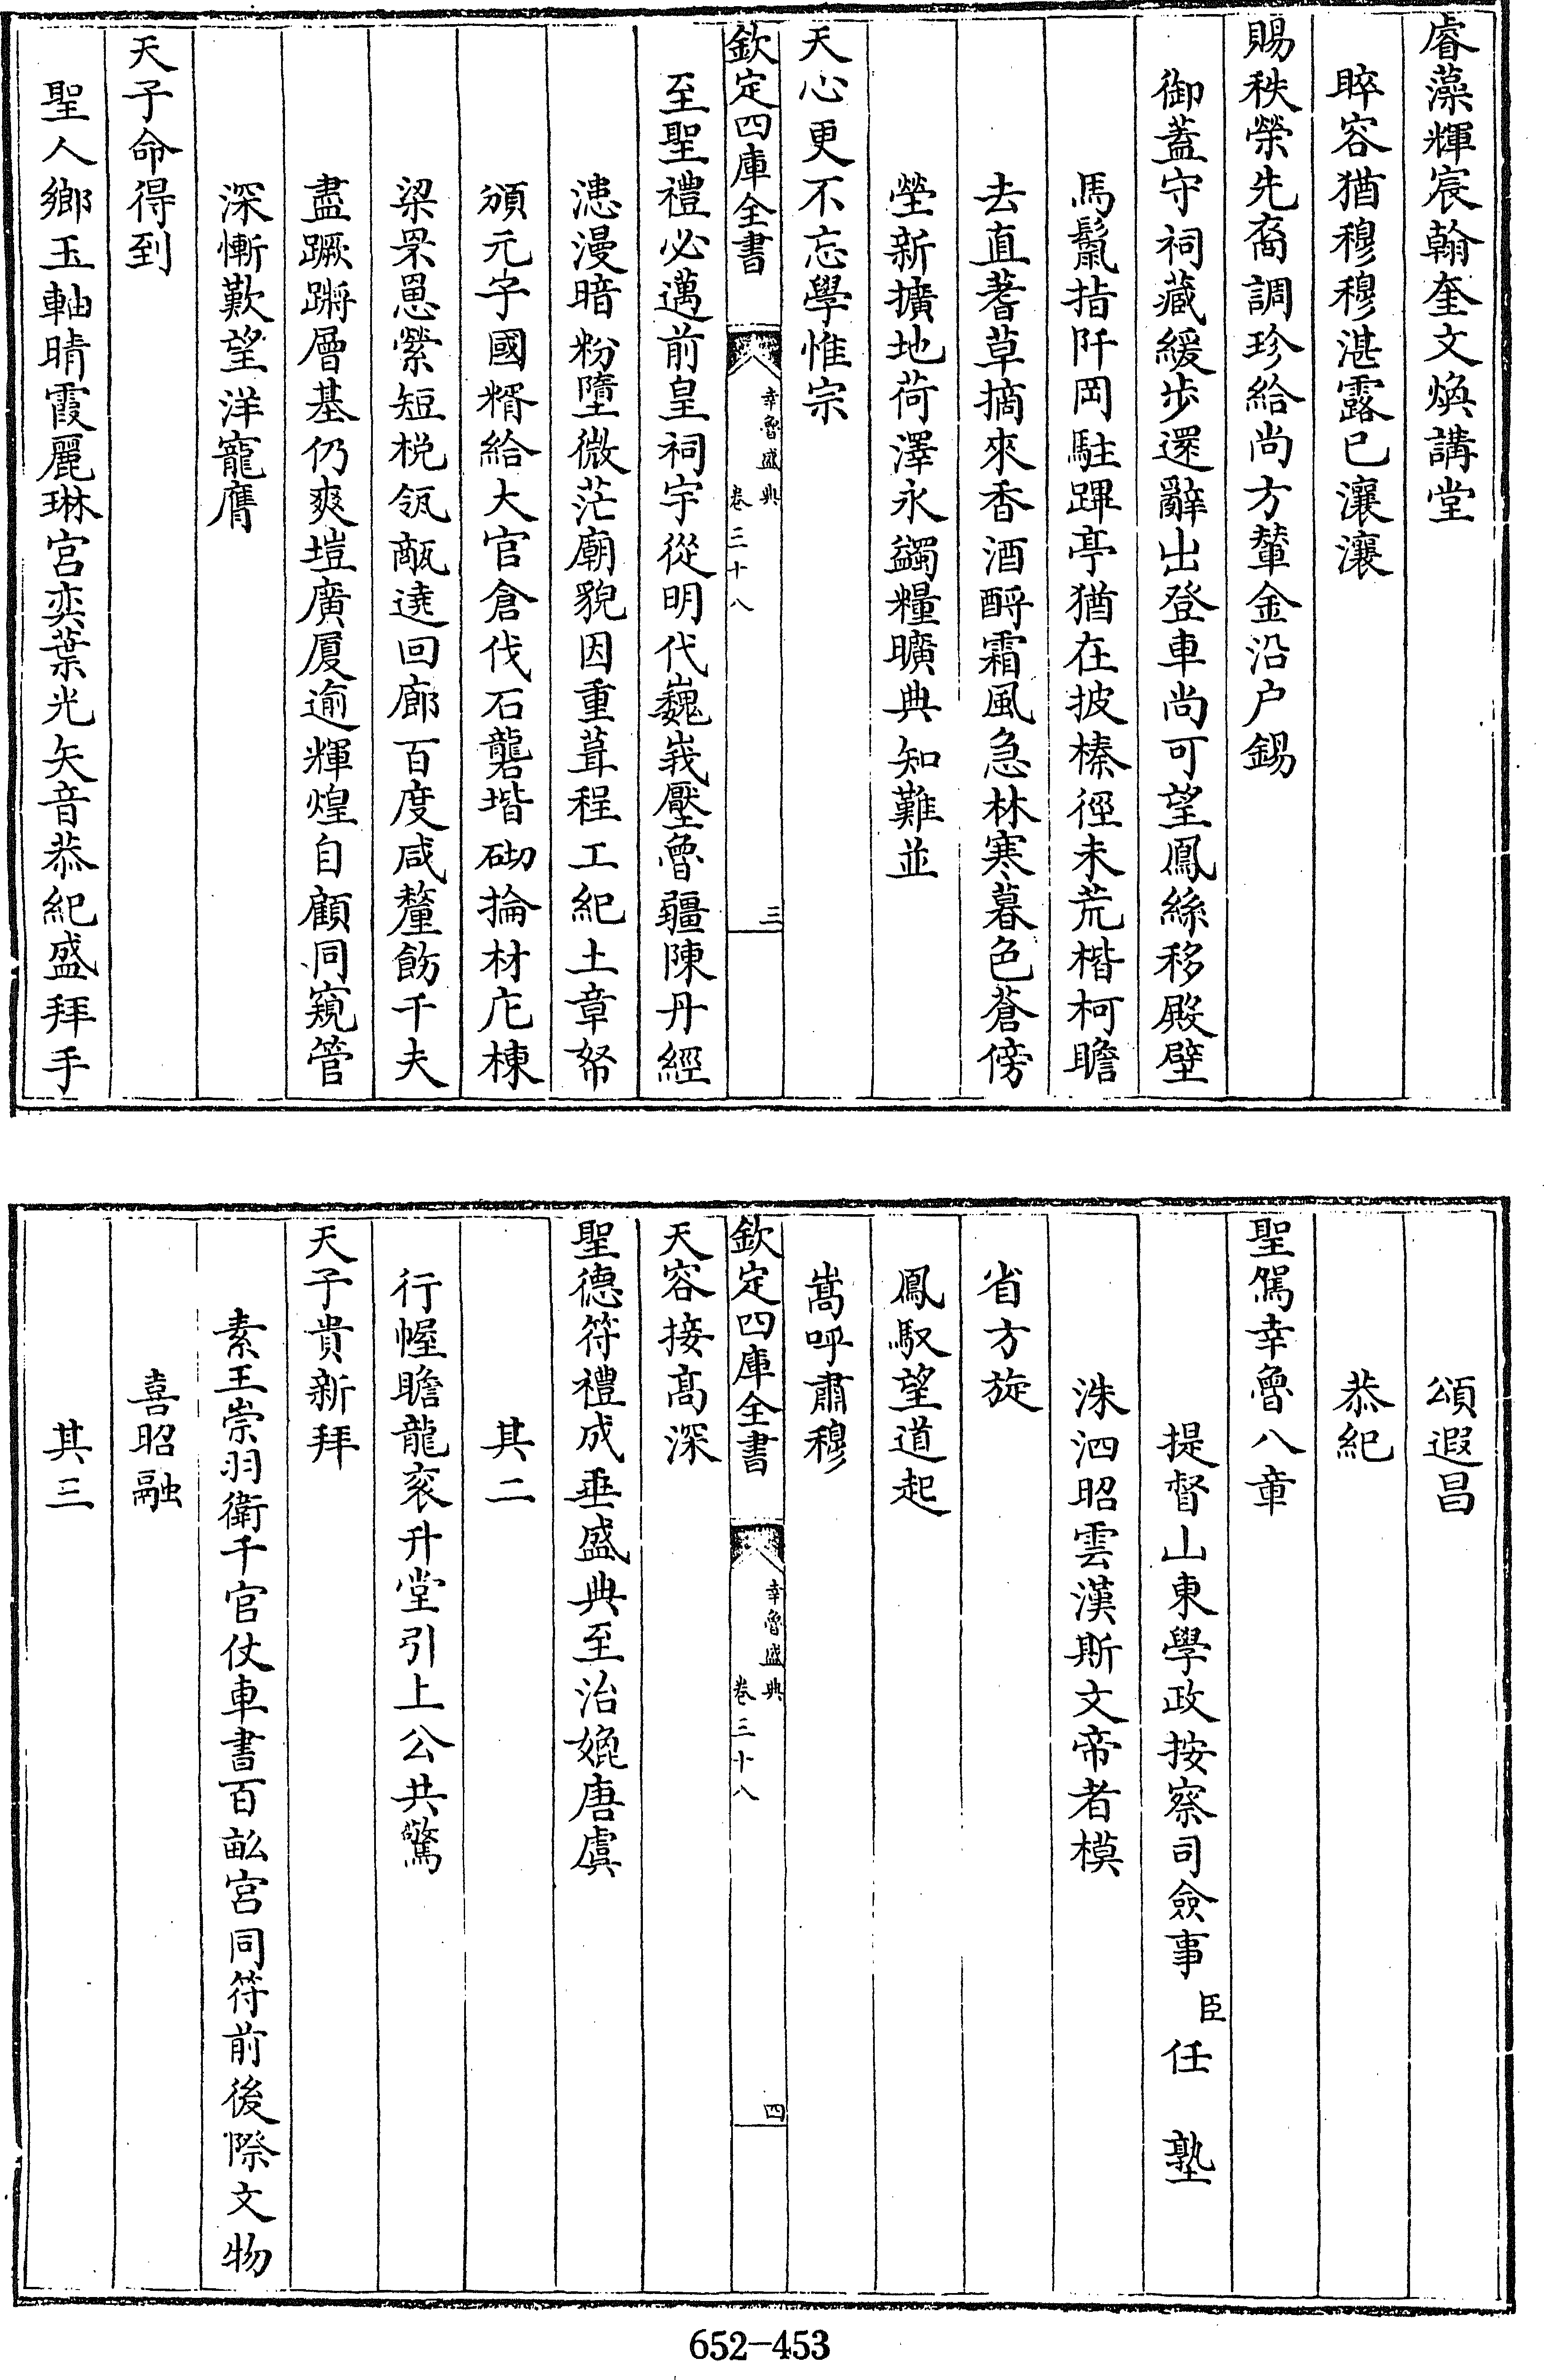 睿藻輝宸翰奎文煥講堂
睟容猶穆穆湛露已瀼瀼
賜秩榮先裔調珍給尚方輦金沿户錫
御蓋守祠藏緩步還辭出登車尚可望鳳絲移殿壁
馬鬛指阡岡駐蹕亭猶在披榛徑未荒楷柯瞻
去直蓍草摘來香酒酹霜風急林寒暮色蒼傍
塋新擴地荷澤永蠲糧曠典知難並
天心更不忘學惟宗
欽定四庫全書
幸魯盛典
卷三十八
三
至聖禮必邁前皇祠宇從明代巍峩壓魯疆陳丹經
漶漫暗粉墮微茫廟貌因重葺程工紀土章帑
頒元字國糈給大官倉伐石礱堦砌掄材庀棟
梁罘罳縈短棁瓴甋遶回廊百度咸釐飭千夫
盡蹶蹡層基仍爽塏廣厦逾輝煌自顧同窺管
深慚歎望洋寵膺
天子命得到
聖人鄉玉軸晴霞麗琳宫奕葉光矢音恭紀盛拜手
頌遐昌
恭紀
聖駕幸魯八章
提督山東學政按察司僉事臣任塾
洙泗昭雲漢斯文帝者模
省方旋
鳳馭望道起
嵩呼肅穆
欽定四庫全書
幸魯盛典
卷三十八
四
天容接髙深
聖德符禮成垂盛典至治娩唐虞
其二
行幄瞻龍衮升堂引上公共驚
天子貴新拜
素王崇羽衛千官仗車書百畝宫同符前後際文物
喜昭融
其三
652-453